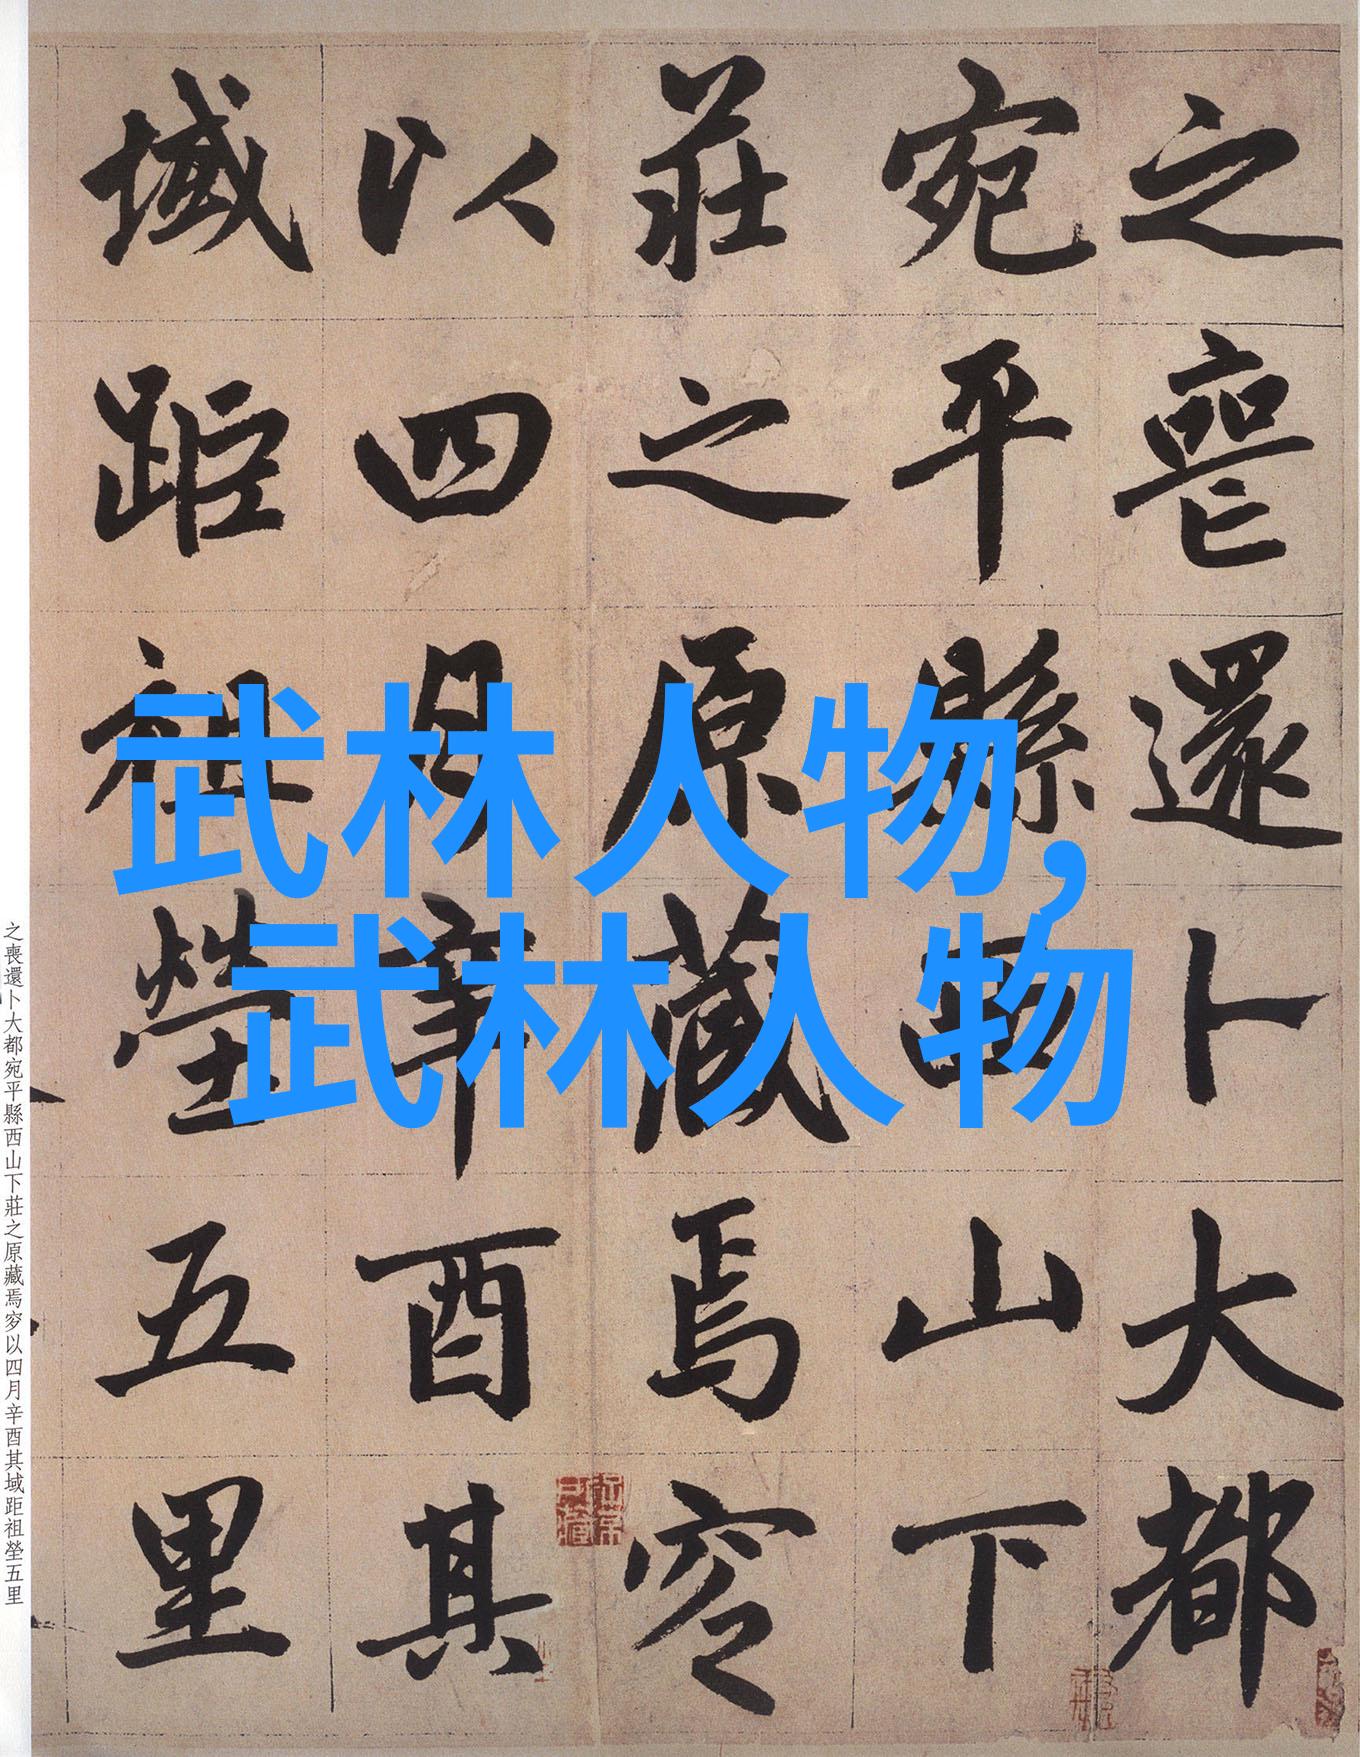 之喪還卜大都
宛平縣西山下
莊之原藏焉窆
以四月辛酉其
域距祖塋五里
武林人物,
武林人物
之喪還卜大都宛平縣西山下莊之原藏焉穸以四月辛酉其域距祖塋五里